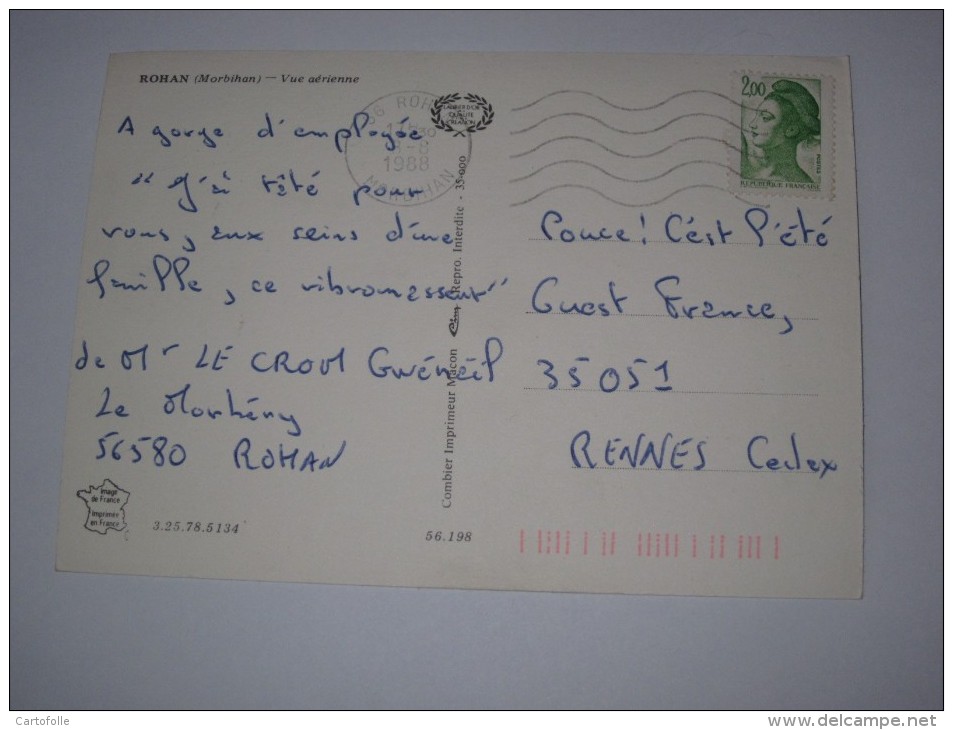 ROHAN (Morbihan) — Vue aérienne
A gorge d'employée
" J'ai tété pour
vous, aux seins d'une
famille, ce vibromasseur"
de Mr LE CROM Gwénéël
Le
56580 ROHAN
Image
de France
Imprimer
en France
3.25.78.5134
56.198
Combier Imprimeur Macon Cim Repro. Interdite - 35-000
56 ROHAN
1988
MORBIHAN
2,00
POSTES
REPUBLIQUE FRANÇAISE
Pouce! C'est l'été
Ouest France,
35051
RENNES Cedex
Cartofolle
www.delcampe.net